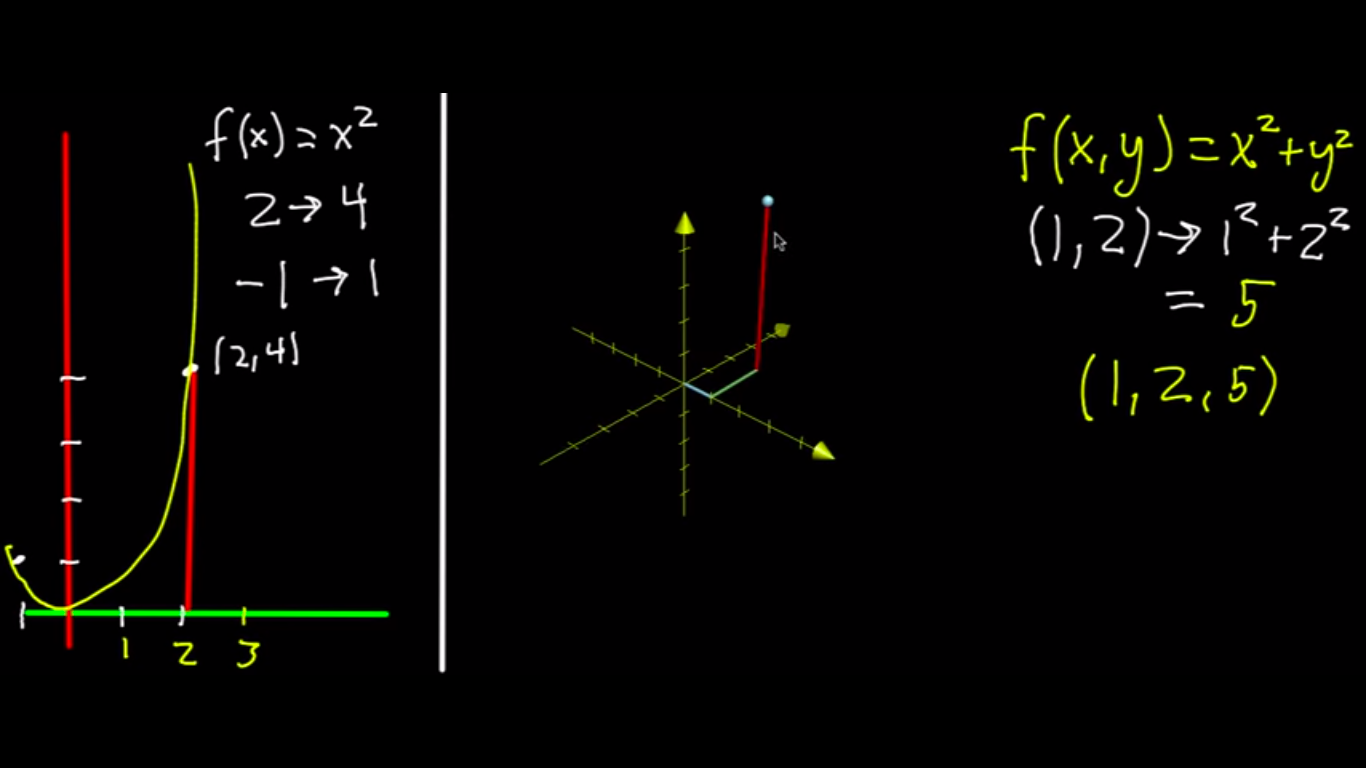 f(x) = x²
2 → 4
-1 → 1
(2,4)
1 2 3
f(x,y) = x²+y²
(1,2) → 1²+2²
= 5
(1,2,5)